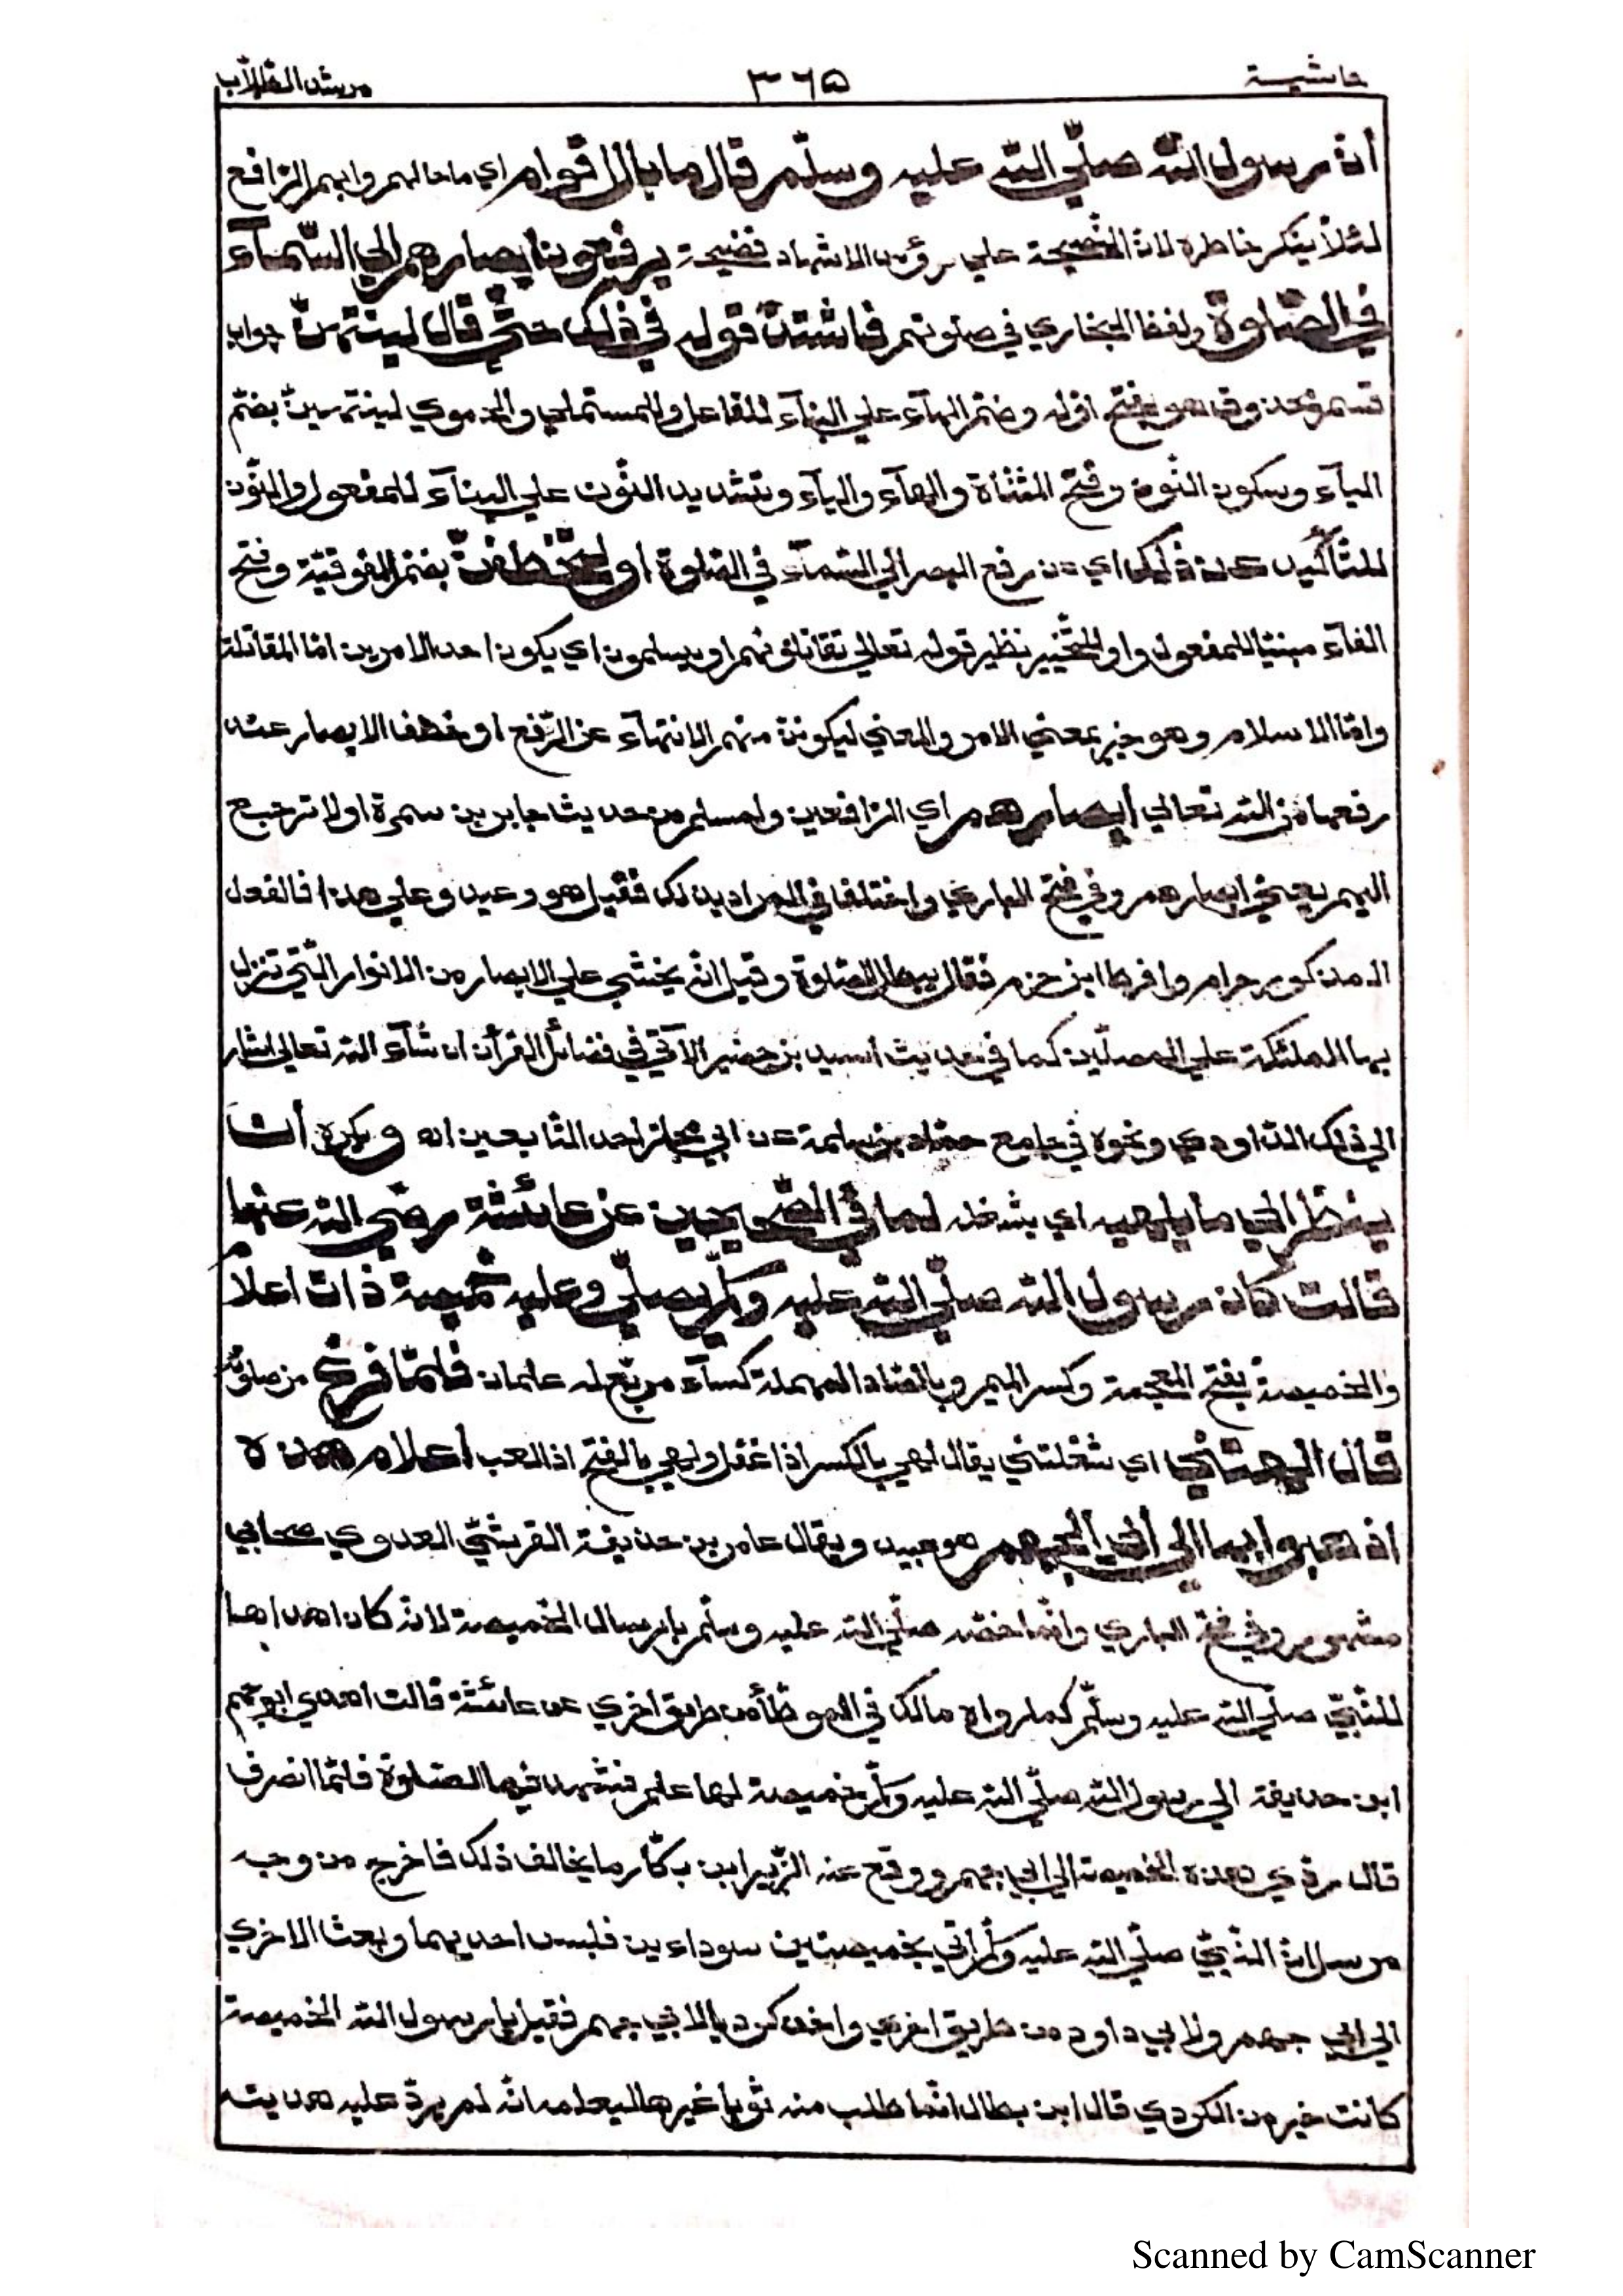 حاشية
٣٦٥
مرشد الطلاب
أن رسول الله صلّي الله عليه وسلّم قال ما بال اقوام اي ما حالهم وابهم الرّافع
لئلّا ينكر خاطره لان النّصيحة علي رؤس الاشهاد فضيحة يرفعون ابصارهم الي السّمآء
في الصّلوة ولفظ البخاري في صلوتهم فاشتدّ قوله في ذلك حتّي قال لينتهنّ جواب
قسم محذوف وهو بفتح اوّله وضمّ الهآء علي البنآء للفاعل وللمستملي والحموي لينتهينّ بضمّ
اليآء وسكون النّون وفتح المثنّاة والهآء واليآء وتشديد النّون علي البنآء للمفعول والنّون
للتّأكيد عن ذلك اي عن رفع البصر الي السّمآء في الصّلوة او لتخطفنّ بضمّ الفوقيّة وفتح
الفآء مبنيّا للمفعول واو للتّخيير نظير قوله تعالي تقاتلونهم او يسلمون اي يكون احد الامرين امّا المقاتلة
وامّا الاسلام وهو خبر بمعني الامر والمعني ليكوننّ منهم الانتهآء عن الرّفع او خطف الابصار عند
رفعها من الله تعالي أبصارهم اي الرّافعين ولمسلم من حديث جابر بن سمرة اولا ترجع
اليهم يعني ابصارهم وفي فتح الباري واختلفا في المراد بذلك فقيل هو وعيد وعلي هذا فالفعل
المذكور حرام وافرط ابن حزم فقال يبطل الصّلوة وقيل انّه يخشي علي الابصار من الانوار الّتي تنزل
بها الملئكة علي المصلّين كما في حديث أسيد بن حضير الآتي في فضائل القرأن ان شآء الله تعالي اشار
الي ذلك الدّاودي ونحوه في جامع حمّاد بن سلمة عن ابي مجلز احد التّابعين اه و يكره أن
ينظر الي ما يلهيه اي يشغله لما في الصّحيحين عن عائشة رضي الله عنها
قالت كان رسول الله صلّي الله عليه وسلّم يصلّي وعليه خميصة ذات اعلام
والخميصة بفتح المعجمة وكسر الميم وبالصّاد المهملة كسآء مربّع له علمان فلمّا فرغ من صلوته
قال الهتني اي شغلتني يقال لهي بالكسر اذا غفل ولهي بالفتح اذا لعب أعلام هذه
اذهبوا بها الي أبي الجهم هو عبيد ويقال عامر بن حذيفة القرشيّ العدوي صحابي
مشهور وفي فتح الباري وانّما خصّه صلّي الله عليه وسلّم بارسال الخميصة لانّه كان اهداها
للنّبيّ صلّي الله عليه وسلّم كما رواه مالك في الموطّأ من طريق اخري عن عائشة قالت اهدي ابو جهم
ابن حذيفة الي رسول الله صلّي الله عليه وسلّم خميصة لها علم فشهد فيها الصّلوة فلمّا انصرف
قال ردّي هذه الخميصة الي ابي جهم ووقع عند الزّبير ابن بكّار ما يخالف ذلك فاخرج من وجه
مرسل انّ النّبيّ صلّي الله عليه وسلّم اتي بخميصتين سوداءين فلبس احديهما وبعث الاخري
الي ابي جهم ولابي داود من طريق اخري واخذ كرديا لابي جهم فقيل يا رسول الله الخميصة
كانت خير من الكردي قال ابن بطال انّما طلب منه ثوبا غيرها ليعلمه انّه لم يردّ عليه هديته
Scanned by CamScanner